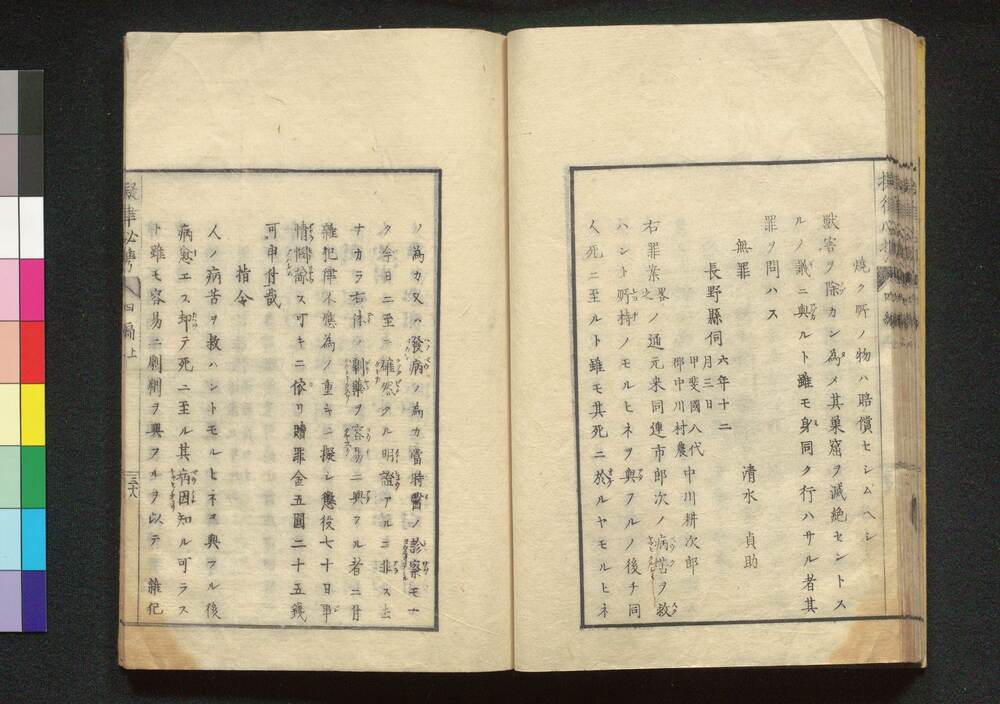 焼ク所ノ物ハ賠償セシムヘシ
獸害ヲ除カン為メ其巣窟ヲ滅絶セントス
ルノ義ニ與ルト雖モ身同ク行ハサル者其
罪ヲ問ハス
無罪 清水貞助
長野縣伺 六年十二月三日
甲斐國八代郡中川村農 中川耕次郎
右罪案之畧ノ通元来同連市郎次ノ病苦ヲ救
ハント所持ノモルヒネヲ與フルノ後チ同
人死ニ至ルト雖モ其死ニ於ルヤモルヒネ
ノ為カ又ハ發病ノ為カ當時醫ノ診察モナ
ク今日ニ至テ確然タル明證アルニ非ス去
ナカラ右体ノ劇藥ヲ容易ニ與フル者ニ付
雜犯律不應為ノ重キニ擬シ懲役七十日事
情憫諒ス可キニ依リ贖罪金五圓二十五錢
可申付哉
指令
人ノ病苦ヲ救ハントモルヒネヲ與フル後
病愈エス却テ死ニ至ル其病因知ル可ラス
ト雖モ容易ニ劇劑ヲ與フルヲ以テ 雜犯
擬律必携 四編上
三十八